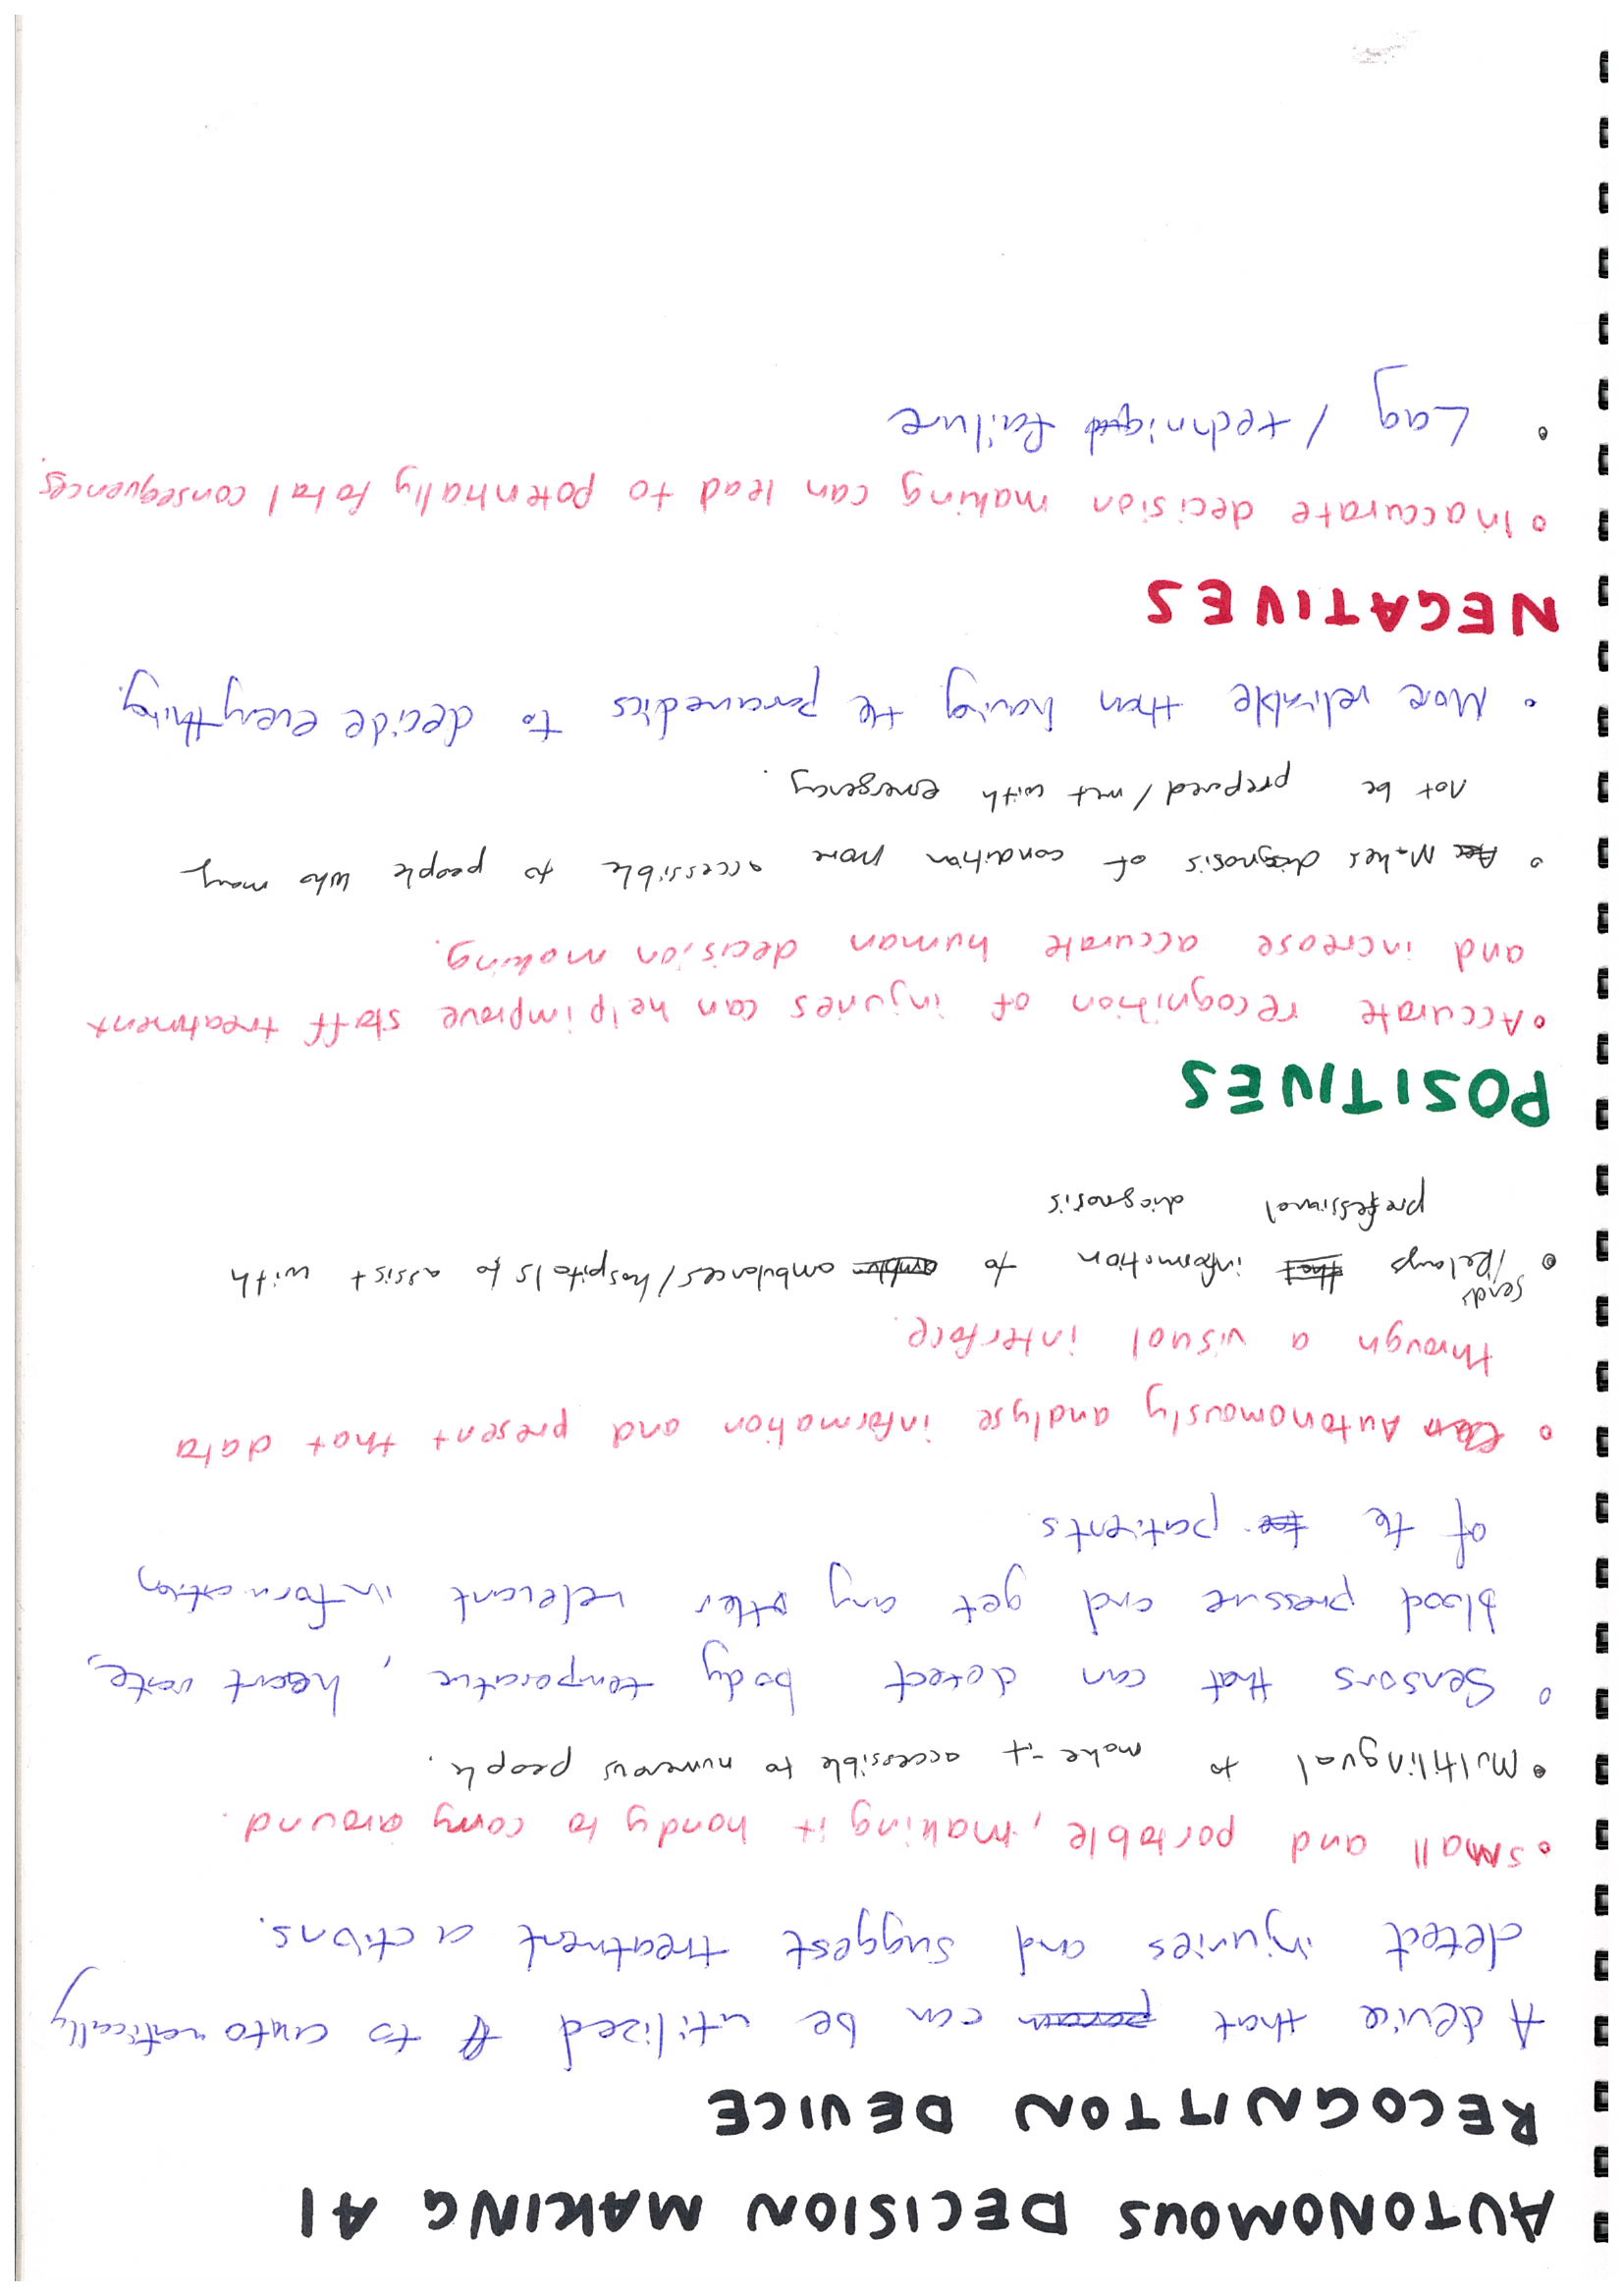 AUTONOMOUS DECISION MAKING AI
RECOGNITION DEVICE
A device that can be utilized to automatically
detect injuries and suggest treatment actions.
• Small and portable, making it handy to carry around.
• Multilingual to make it accessible to numerous people.
• Sensors that can detect body temperature, heart rate,
blood pressure and get any other relevant information
of the patients
• Autonomously analyse information and present that data
through a visual interface.
• Sends/Relays information to ambulances/hospitals to assist with
professional diagnosis
POSITIVES
• Accurate recognition of injuries can help improve staff treatment
and increase accurate human decision making.
• Makes diagnosis of condition more accessible to people who many
not be prepared/met with emergency.
• More reliable than having the paramedics to decide everything.
NEGATIVES
• Inaccurate decision making can lead to potentially fatal consequences.
• Lag / failure